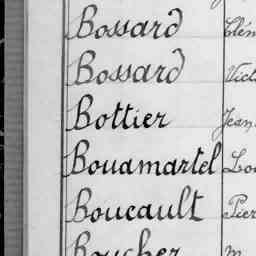 Bossard Clém
Bossard Vict
Bottier Jean
Bouamartel Lou
Boucault Pier
Boucher M